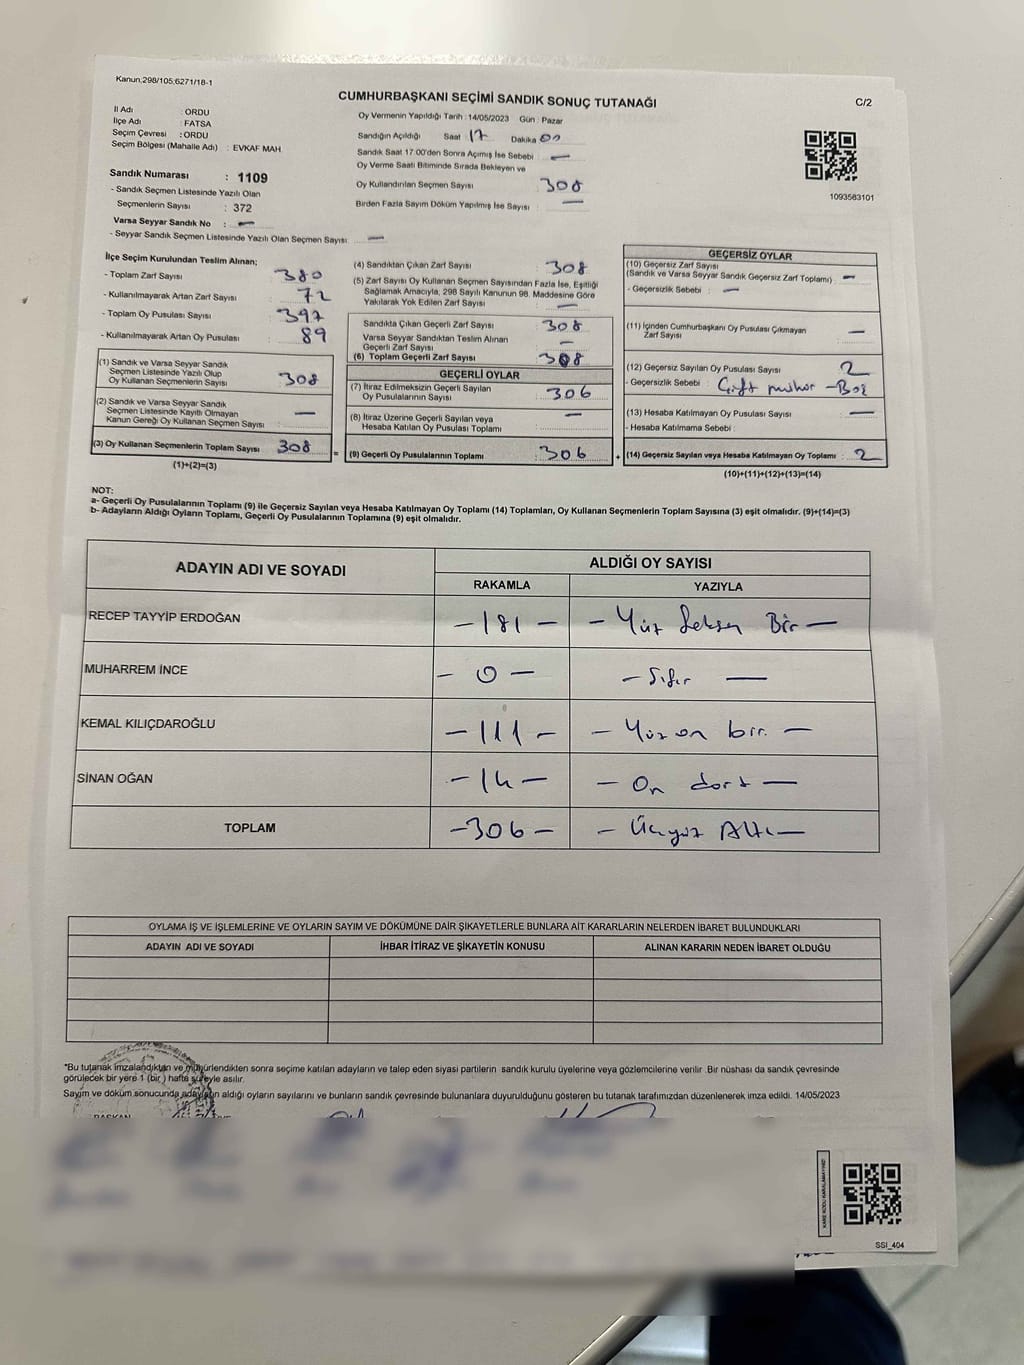 Kanun,298/105,6271/18-1
CUMHURBAŞKANI SEÇİMİ SANDIK SONUÇ TUTANAĞI
C/2
İl Adı : ORDU
İlçe Adı : FATSA
Seçim Çevresi : ORDU
Seçim Bölgesi (Mahalle Adı) : EVKAF MAH
Sandık Numarası : 1109
- Sandık Seçmen Listesinde Yazılı Olan
Seçmenlerin Sayısı : 372
Varsa Seyyar Sandık No : —
- Seyyar Sandık Seçmen Listesinde Yazılı Olan Seçmen Sayısı: —
Oy Vermenin Yapıldığı Tarih : 14/05/2023 Gün : Pazar
Sandığın Açıldığı Saat 17 Dakika 00
Sandık Saat 17:00'den Sonra Açımış İse Sebebi —
Oy Verme Saati Bitiminde Sırada Bekleyen ve
Oy Kullandırılan Seçmen Sayısı 308
Birden Fazla Sayım Döküm Yapılmış İse Sayısı : —
1093583101
İlçe Seçim Kurulundan Teslim Alınan;
- Toplam Zarf Sayısı 380
- Kullanılmayarak Artan Zarf Sayısı : 72
- Toplam Oy Pusulası Sayısı : 397
- Kullanılmayarak Artan Oy Pusulası : 89
(1) Sandık ve Varsa Seyyar Sandık
Seçmen Listesinde Yazılı Olup
Oy Kullanan Seçmenlerin Sayısı : 308
(2) Sandık ve Varsa Seyyar Sandık
Seçmen Listesinde Kayıtlı Olmayan
Kanun Gereği Oy Kullanan Seçmen Sayısı : —
(3) Oy Kullanan Seçmenlerin Toplam Sayısı : 308
(1)+(2)=(3)
(4) Sandıktan Çıkan Zarf Sayısı : 308
(5) Zarf Sayısı Oy Kullanan Seçmen Sayısından Fazla İse, Eşitliği
Sağlamak Amacıyla, 298 Sayılı Kanunun 98. Maddesine Göre
Yakılarak Yok Edilen Zarf Sayısı : —
Sandıkta Çıkan Geçerli Zarf Sayısı : 308
Varsa Seyyar Sandıktan Teslim Alınan
Geçerli Zarf Sayısı : —
(6) Toplam Geçerli Zarf Sayısı : 308
GEÇERLİ OYLAR
(7) İtiraz Edilmeksizin Geçerli Sayılan
Oy Pusulalarının Sayısı : 306
(8) İtiraz Üzerine Geçerli Sayılan veya
Hesaba Katılan Oy Pusulası Toplamı : —
= (9) Geçerli Oy Pusulalarının Toplamı : 306
GEÇERSİZ OYLAR
(10) Geçersiz Zarf Sayısı
(Sandık ve Varsa Seyyar Sandık Geçersiz Zarf Toplamı) : —
- Geçersizlik Sebebi : —
(11) İçinden Cumhurbaşkanı Oy Pusulası Çıkmayan
Zarf Sayısı : —
(12) Geçersiz Sayılan Oy Pusulası Sayısı : 2
- Geçersizlik Sebebi : Çift mühür - Boş
(13) Hesaba Katılmayan Oy Pusulası Sayısı : —
- Hesaba Katılmama Sebebi :
+ (14) Geçersiz Sayılan veya Hesaba Katılmayan Oy Toplamı : 2
(10)+(11)+(12)+(13)=(14)
NOT:
a- Geçerli Oy Pusulalarının Toplamı (9) ile Geçersiz Sayılan veya Hesaba Katılmayan Oy Toplamı (14) Toplamları, Oy Kullanan Seçmenlerin Toplam Sayısına (3) eşit olmalıdır. (9)+(14)=(3)
b- Adayların Aldığı Oyların Toplamı, Geçerli Oy Pusulalarının Toplamına (9) eşit olmalıdır.
ADAYIN ADI VE SOYADI
ALDIĞI OY SAYISI
RAKAMLA YAZIYLA
RECEP TAYYİP ERDOĞAN — 181 — — Yüz Seksen Bir —
MUHARREM İNCE — 0 — — Sıfır —
KEMAL KILIÇDAROĞLU — 111 — — Yüz on bir —
SİNAN OĞAN — 14 — — On dört —
TOPLAM — 306 — — Üçyüz Altı —
OYLAMA İŞ VE İŞLEMLERİNE VE OYLARIN SAYIM VE DÖKÜMÜNE DAİR ŞİKAYETLERLE BUNLARA AİT KARARLARIN NELERDEN İBARET BULUNDUKLARI
ADAYIN ADI VE SOYADI İHBAR İTİRAZ VE ŞİKAYETİN KONUSU ALINAN KARARIN NEDEN İBARET OLDUĞU
*Bu tutanak imzalandıktan ve mühürlendikten sonra seçime katılan adayların ve talep eden siyasi partilerin sandık kurulu üyelerine veya gözlemcilerine verilir .Bir nüshası da sandık çevresinde
görülecek bir yere 1 (bir ) hafta süreyle asılır.
Sayım ve döküm sonucunda adayların aldığı oyların sayılarını ve bunların sandık çevresinde bulunanlara duyurulduğunu gösteren bu tutanak tarafımızdan düzenlenerek imza edildi. 14/05/2023
BAŞKAN
KARE KODU KARALAMAYINIZ!
SSI_404